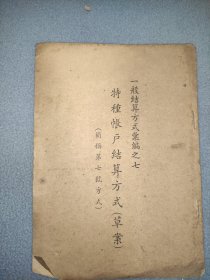 一般結算方式彙編之七
特種帳戶結算方式(草案)
(簡稱第七號方式)